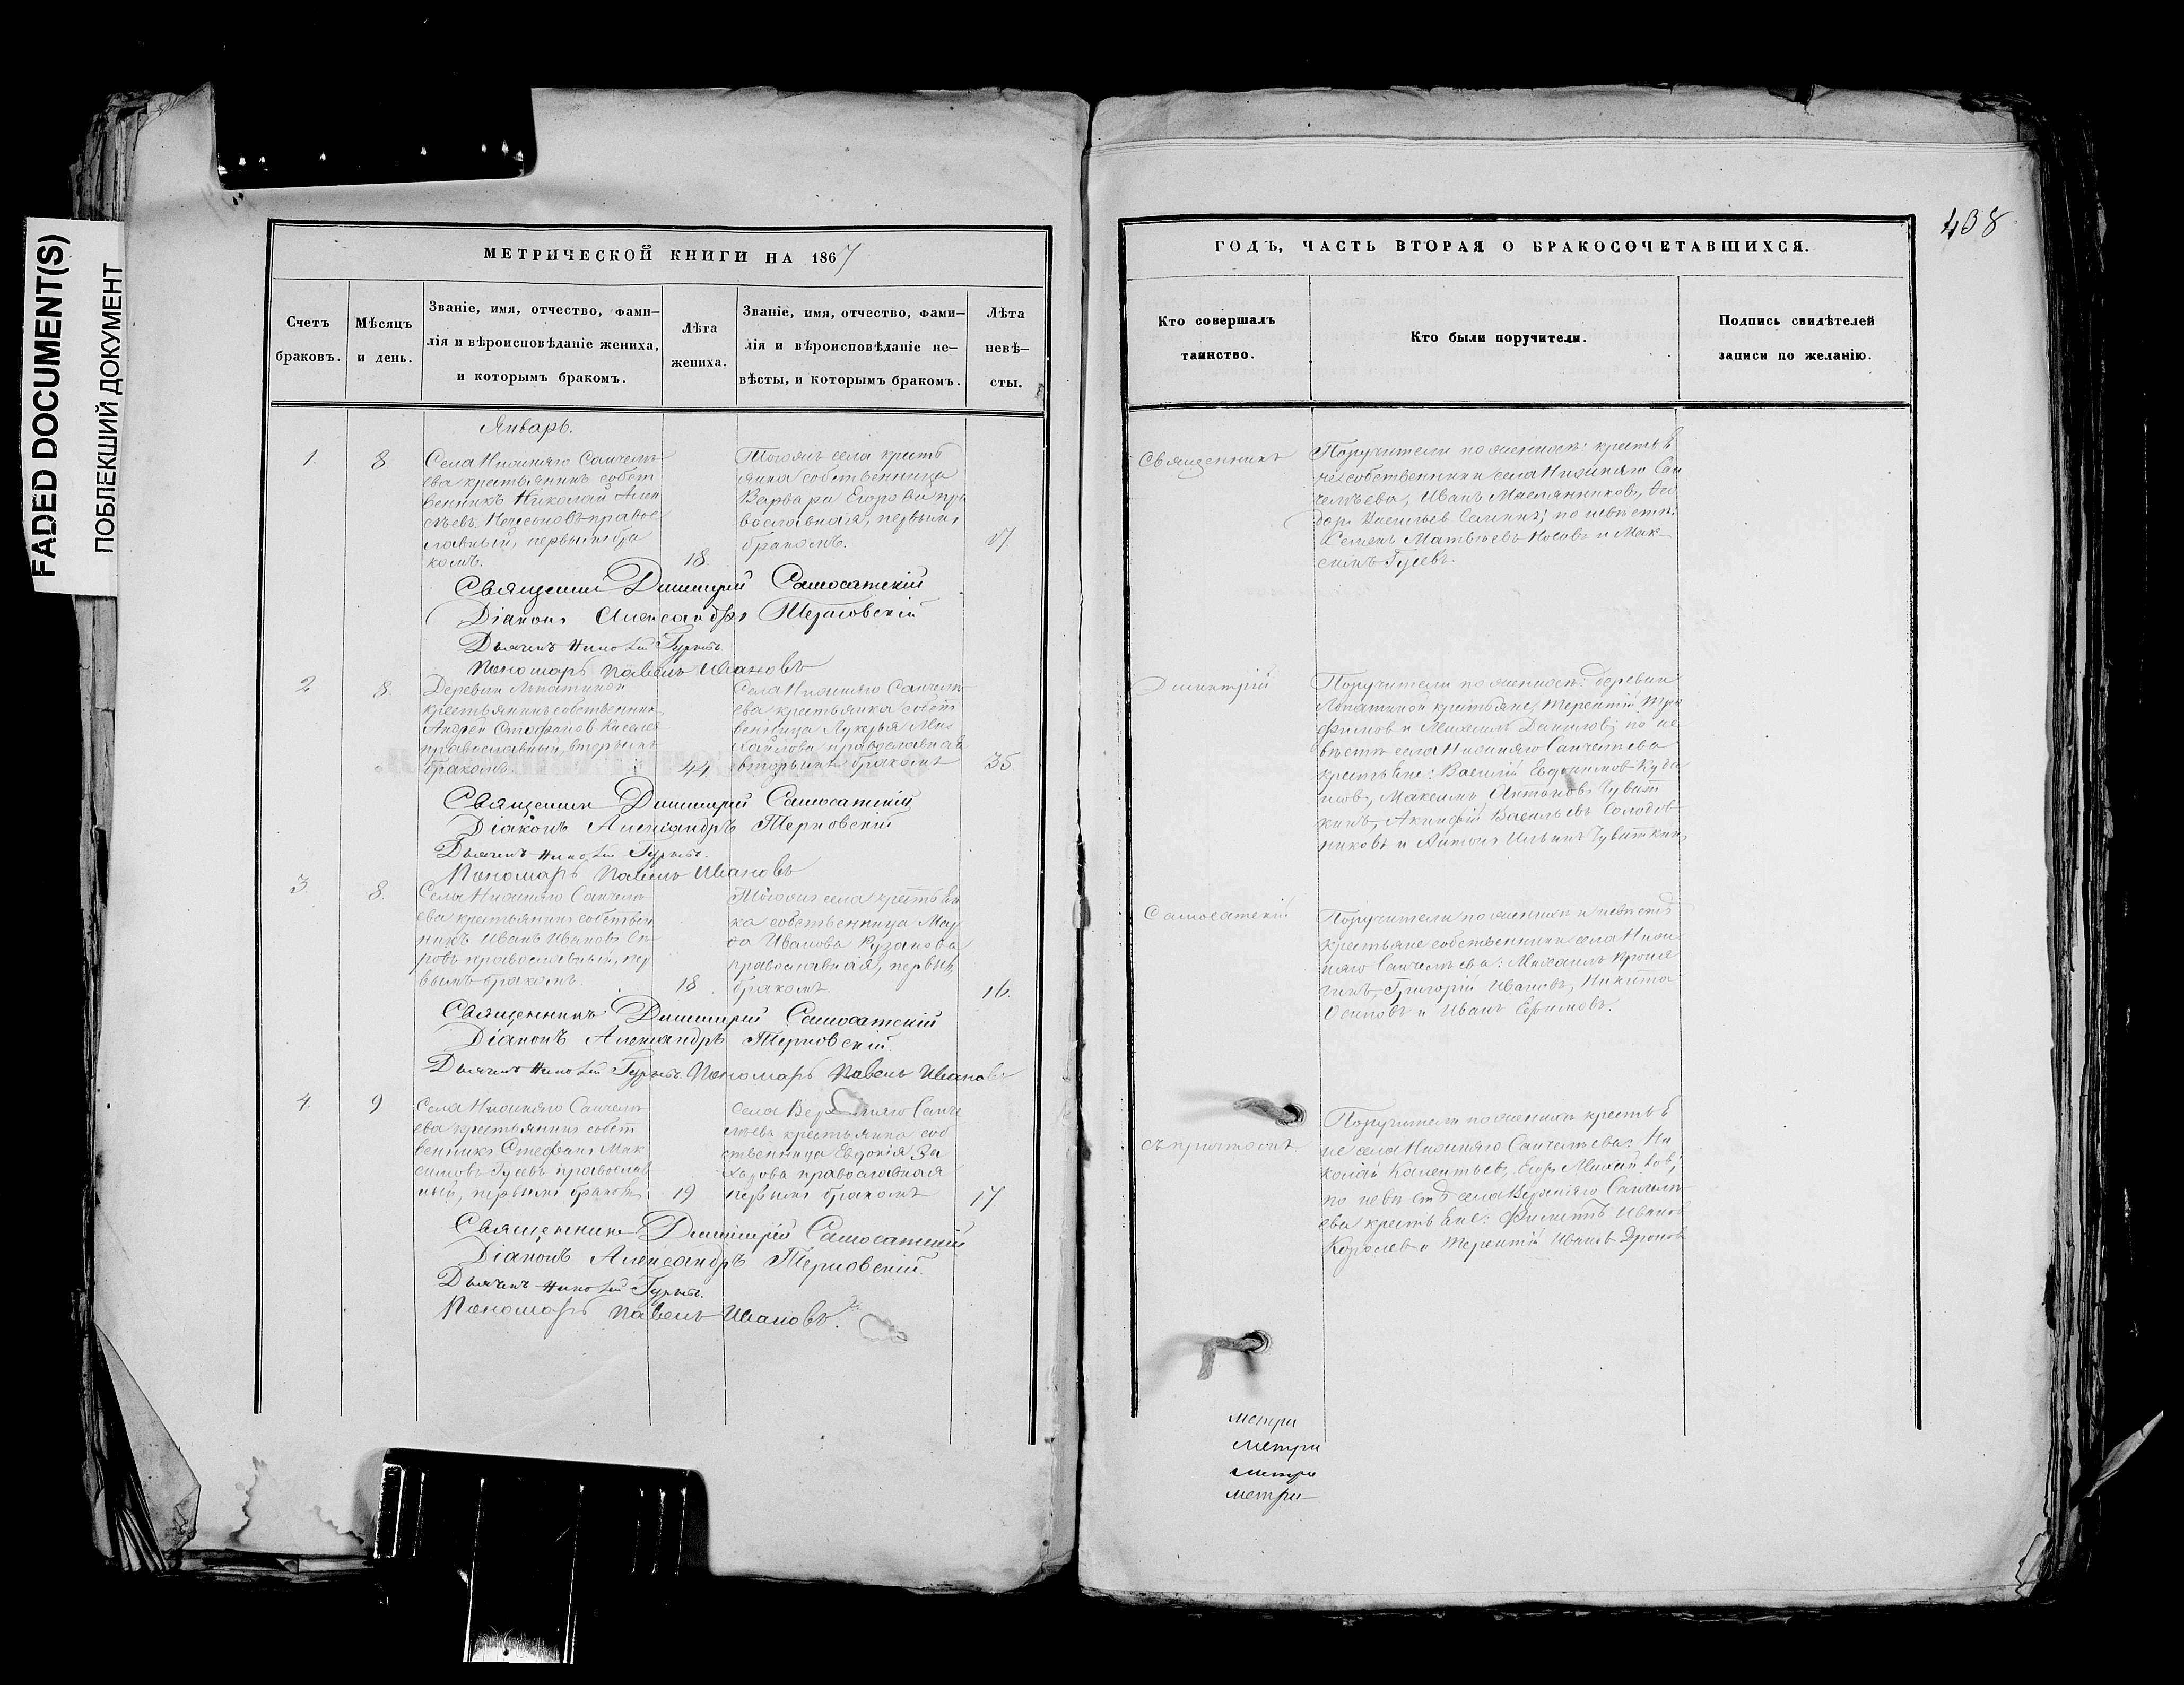 FADED DOCUMENT(S)
ПОБЛЕКШИЙ ДОКУМЕНТ
МЕТРИЧЕСКОЙ КНИГИ НА 1867
Счетъ браковъ.
Мѣсяцъ и день.
Званіе, имя, отчество, фами-
лія и вѣроисповѣданіе жениха,
и которымъ бракомъ.
Лѣта
жениха.
Званіе, имя, отчество, фами-
лія и вѣроисповѣданіе не-
вѣсты, и которымъ бракомъ.
Лѣта
невѣ-
сты.
Январь.
1. 8.
Села Нижняго Санчелѣ-
ева крестьянинъ собст
венникъ Николай Алек
сѣевъ правос
лавный, первымъ бра
комъ.
18.
Тогожъ села кресть
янка собственница
Варвара Егорова пра
вославная, первымъ
бракомъ.
17
Священникъ Димитрій Самосатскій
Діаконъ Александръ Терновскій
Дьячекъ Николай Гурьевъ.
Пономарь Павелъ Ивановъ
2 8.
Деревни Лопатиной
крестьянинъ собственникъ
Андрей Стефановъ Киселев
православный, вторымъ
бракомъ.
44
Села Нижняго Санчелѣ-
ева крестьянка собст
венница Лукерья Ми
хайлова православная
вторымъ бракомъ
35.
Священникъ Димитрій Самосатскій
Діаконъ Александръ Терновскій
Дьячекъ Николай Гурьевъ.
Пономарь Павелъ Ивановъ
3. 8.
Села Нижняго Санчелѣ
ева крестьянинъ собствен
никъ Иванъ Ивановъ
православный, пер
вымъ бракомъ.
18
Тогожъ села крестьян
ка собственница
Иванова
православная, первым
бракомъ.
16.
Священникъ Димитрій Самосатскій
Діаконъ Александръ Терновскій.
Дьячекъ Николай Гурьевъ. Пономарь Павелъ Ивановъ
4. 9
Села Нижняго Санчелѣ
ева крестьянинъ собст
венникъ Стефанъ Мак
симовъ Гусевъ православ
ный, первымъ бракомъ
19
Села Верхняго Санче
лѣева крестьянка соб
ственница Евдокія За
харова православная
первымъ бракомъ
17
Священникъ Димитрій Самосатскій
Діаконъ Александръ Терновскій
Дьячекъ Николай Гурьевъ.
Пономарь Павелъ Ивановъ.
408
ГОДЪ, ЧАСТЬ ВТОРАЯ О БРАКОСОЧЕТАВШИХСЯ.
Кто совершалъ
таинство.
Кто были поручители.
Подпись свидѣтелей
записи по желанію.
Священникъ
Поручители по женихѣ: крестья
не собственники села Нижняго Сан
челѣева, Иванъ Масляниковъ, Ѳео
доръ Васильев Семкинъ; по невѣстѣ:
Семенъ Матвѣевъ Носовъ и Мак-
симъ Гусевъ.
Димитрій
Поручители по женихѣ: деревни
Лопатиной крестьяне, Терентій Тро
фимов и Михаилъ Данилов; по не
вѣстѣ села Нижняго Санчелѣева
крестьяне: Василій Евдокимов
Максимъ Антоновъ Чуват
кинъ, Акинфій Васильевъ Солодов
никовъ и Антонъ Ильинъ Чуваткинъ
Самосатскій
Поручители по женихѣ и невѣстѣ
крестьяне собственники села Ниж
няго Санчелѣева: Михаилъ
Григорій Ивановъ, Никита
Осиповъ и Иванъ Ефимовъ.
съ причтомъ.
Поручители по женихѣ крестья
не села Нижняго Санчелѣева: Ни
колай Егоръ Михайлов,
по невѣстѣ села Верхняго Санчелѣ
ева крестьяне: Филиппъ Иванов
Королев и Терентій Иванов Дроновъ
метри
метри
метри
метри